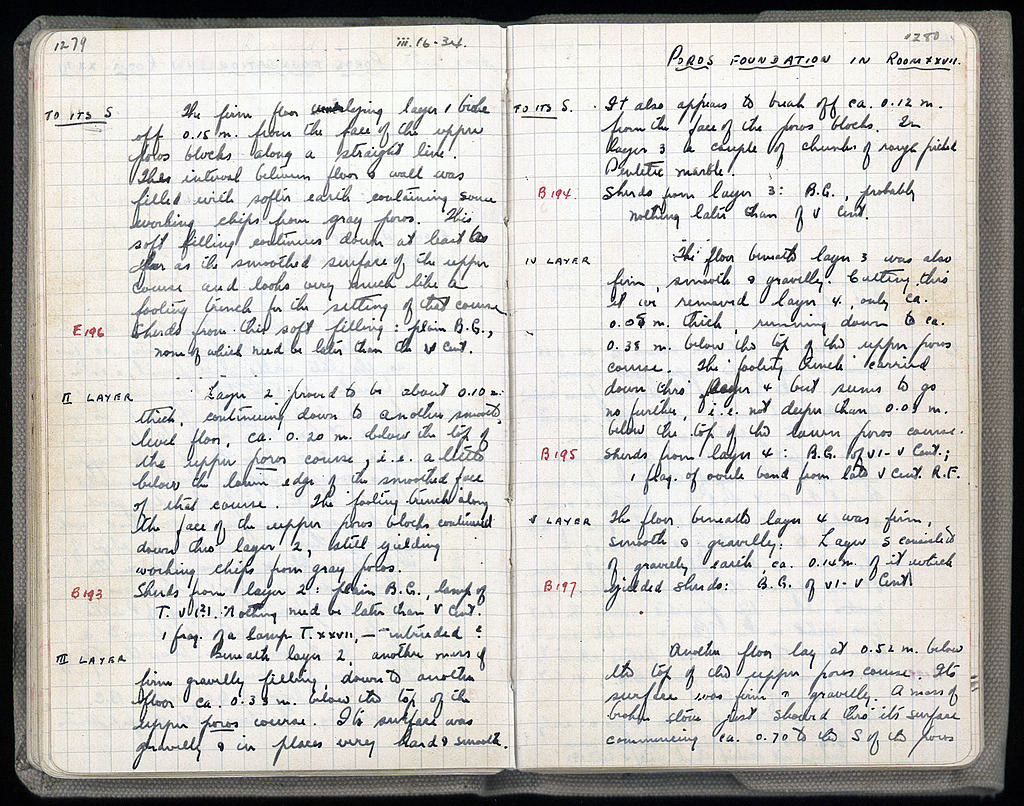 1279
iii.16-34.
TO ITS S.
The firm floor underlying layer 1 broke
off 0.15 m. from the face of the upper
poros blocks along a straight line.
This interval between floor & wall was
filled with softer earth containing some
working chips from gray poros. This
soft filling continues down at least as
far as the smoothed surface of the upper
course and looks very much like a
footing trench for the setting of that course.
E196
Sherds from this soft filling: plain B.G.,
none of which need be later than the V Cent.
II LAYER
Layer 2 proved to be about 0.10 m.
thick, continuing down to another smooth,
level floor, ca. 0.20 m. below the top of
the upper poros course, i.e. a little
below the lower edge of the smoothed face
of that course. The footing trench along
the face of the upper poros blocks continued
down thro layer 2, still yielding
working chips from gray poros.
B193
Sherds from layer 2: plain B.G., lamp of
T. V. Nothing need be later than V Cent.
1 frag. of a lamp T. XXVII, — intruded?
III LAYER
Beneath layer 2, another mass of
firm gravelly filling, down to another
floor ca. 0.33 m. below the top of the
upper poros course. Its surface was
gravelly & in places very hard & smooth.
1280
POROS FOUNDATION IN ROOM XXVII.
TO ITS S.
It also appears to break off ca. 0.12 m.
from the face of the poros blocks. In
layer 3 a couple of chunks of rough picked
Pentelic marble.
B194.
Sherds from layer 3: B.G., probably
nothing later than of V Cent.
IV LAYER
The floor beneath layer 3 was also
firm, smooth & gravelly. Cutting this
we removed layer 4, only ca.
0.05 m. thick, running down to ca.
0.38 m. below the top of the upper poros
course. The footing trench carried
down thro' layer 4 but seems to go
no further, i.e. not deeper than 0.03 m.
below the top of the lower poros course.
B195
Sherds from layer 4: B.G. of VI-V Cent.;
1 frag. of ovule band from late V Cent. R.F.
V LAYER
The floor beneath layer 4 was firm,
smooth & gravelly. Layer 5 consisted
of gravelly earth, ca. 0.14 m. of it which
B197
yielded sherds: B.G. of VI-V Cent
Another floor lay at 0.52 m. below
the top of the upper poros course. Its
surface was firm & gravelly. A mass of
broken stone just showed thro' its surface
commencing ca. 0.70 to the S of the poros